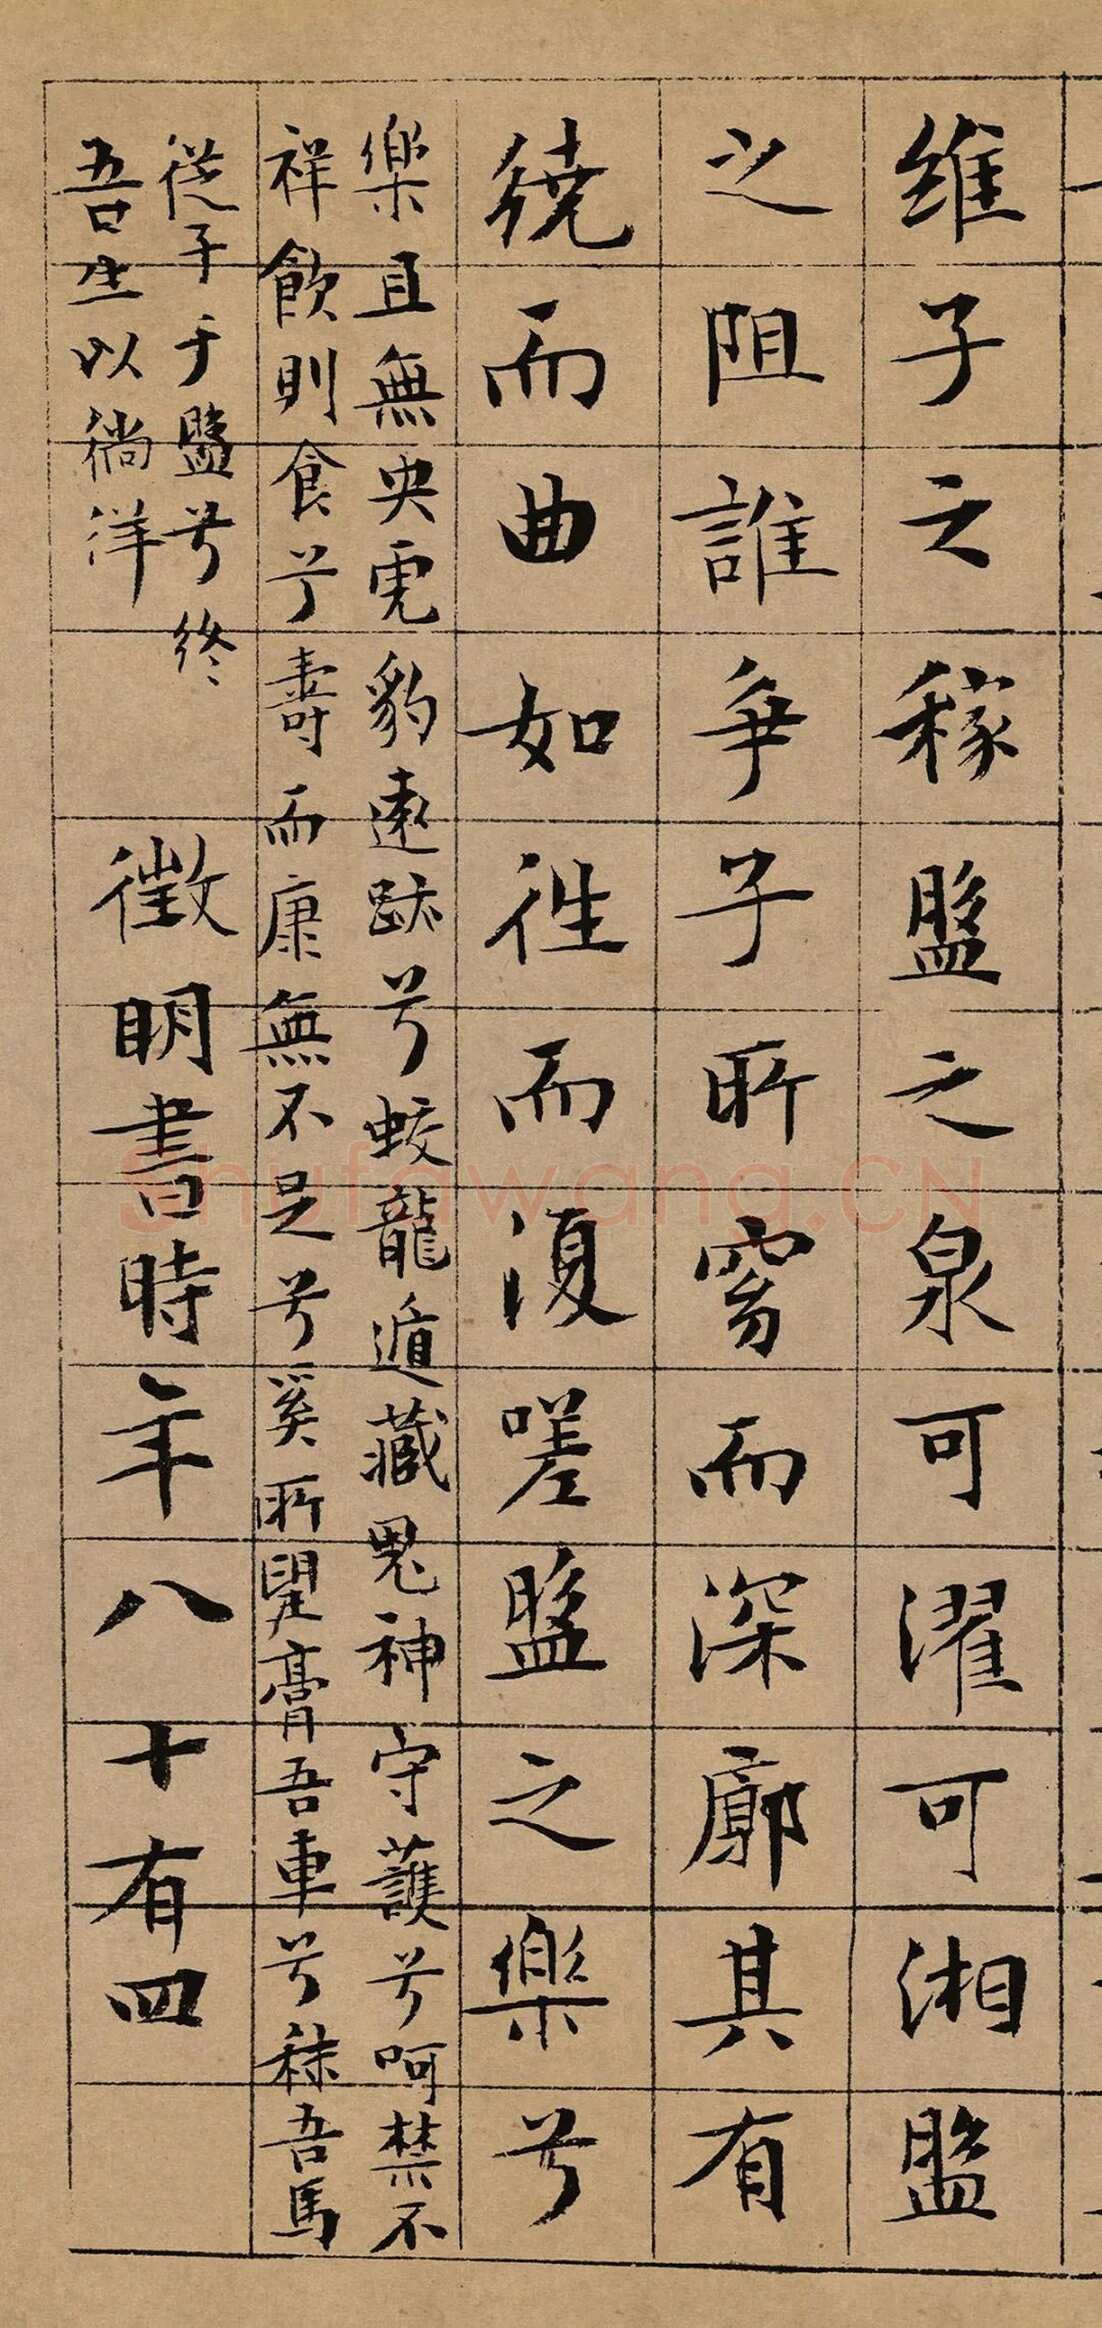 維子之稼盤之泉可濯可湘盤
之阻誰爭子所窈而深廓其有
繞而曲如往而復嗟盤之樂兮
樂且無央虎豹遠跡兮蛟龍遁藏鬼神守護兮呵禁不
祥飲則食兮壽而康無不足兮奚所望膏吾車兮秣吾馬
從子于盤兮終
吾生以徜洋
徵明書時年八十有四
shufawang.CN